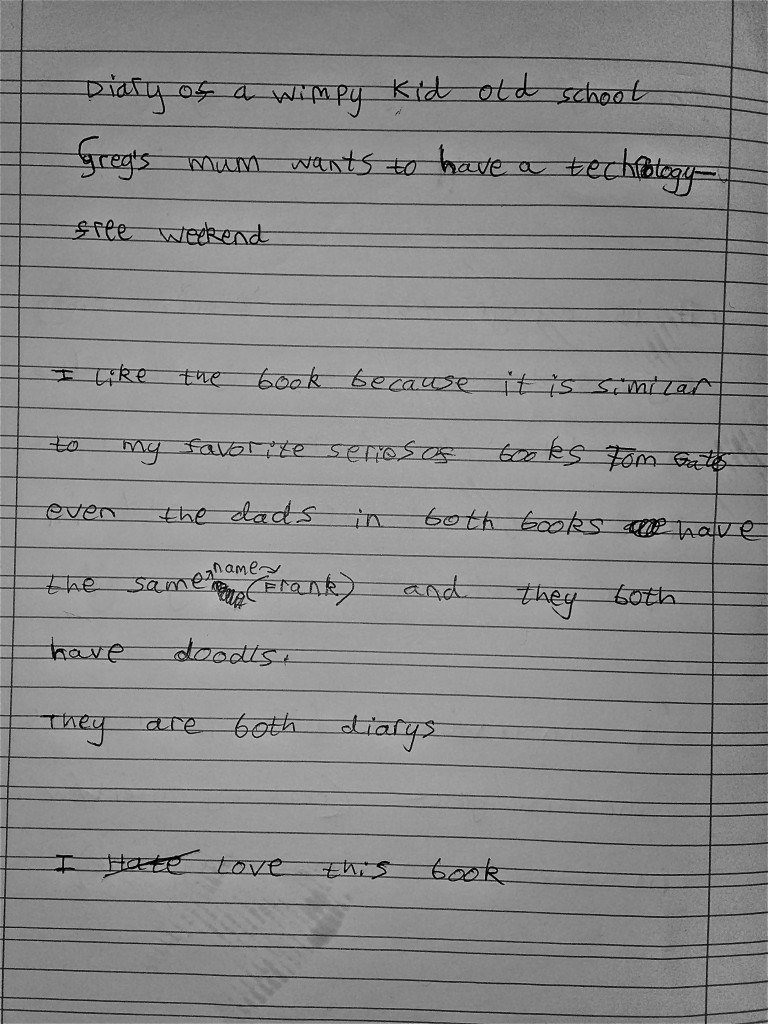 Diary of a wimpy kid old school
Greg's mum wants to have a technology-
free weekend
I like the book because it is similar
to my favorite series of books Tom Gates
even the dads in both books have
the same name (Frank) and they both
have doodls.
They are both diarys
I Hate love this book